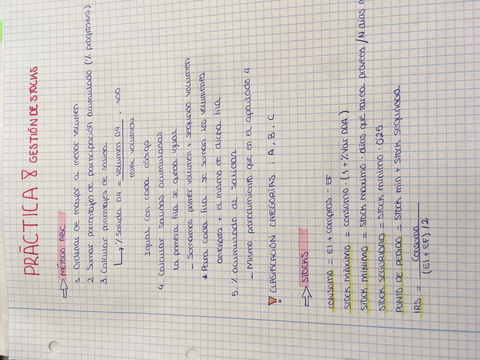 PRÁCTICA 8 GESTIÓN DE STOCKS
MÉTODO ABC
1. Ordenar de mayor a menor volumen
2. Sumar porcentajes de participación acumulado (% progresiva)
3. Calcular porcentajes de salida
% Salida 04 = Volumen 04 . 100
Total volumen
Igual con cada código
4. Calcular salidas acumuladas
La primera fila se queda igual
- Sumamos primer volumen + segundo volumen
* Para cada fila se suman los volúmenes
anteriores + el mismo de dicha fila
5. % acumulado de salidas
- Mismo procedimiento que en el apartado 4
CLASIFICACIÓN CATEGORÍAS: A, B, C
STOCKS
CONSUMO = EI + compras - EF
STOCK MÁXIMO = consumo · (1 + % Var DDA)
STOCK MÍNIMO = Stock máximo · días que tarda provees / N días
STOCK SEGURIDAD = Stock mínimo · 0.25
PUNTO DE PEDIDO = Stock min + Stock seguridad
IRS = Consumo
(EI + EF) / 2